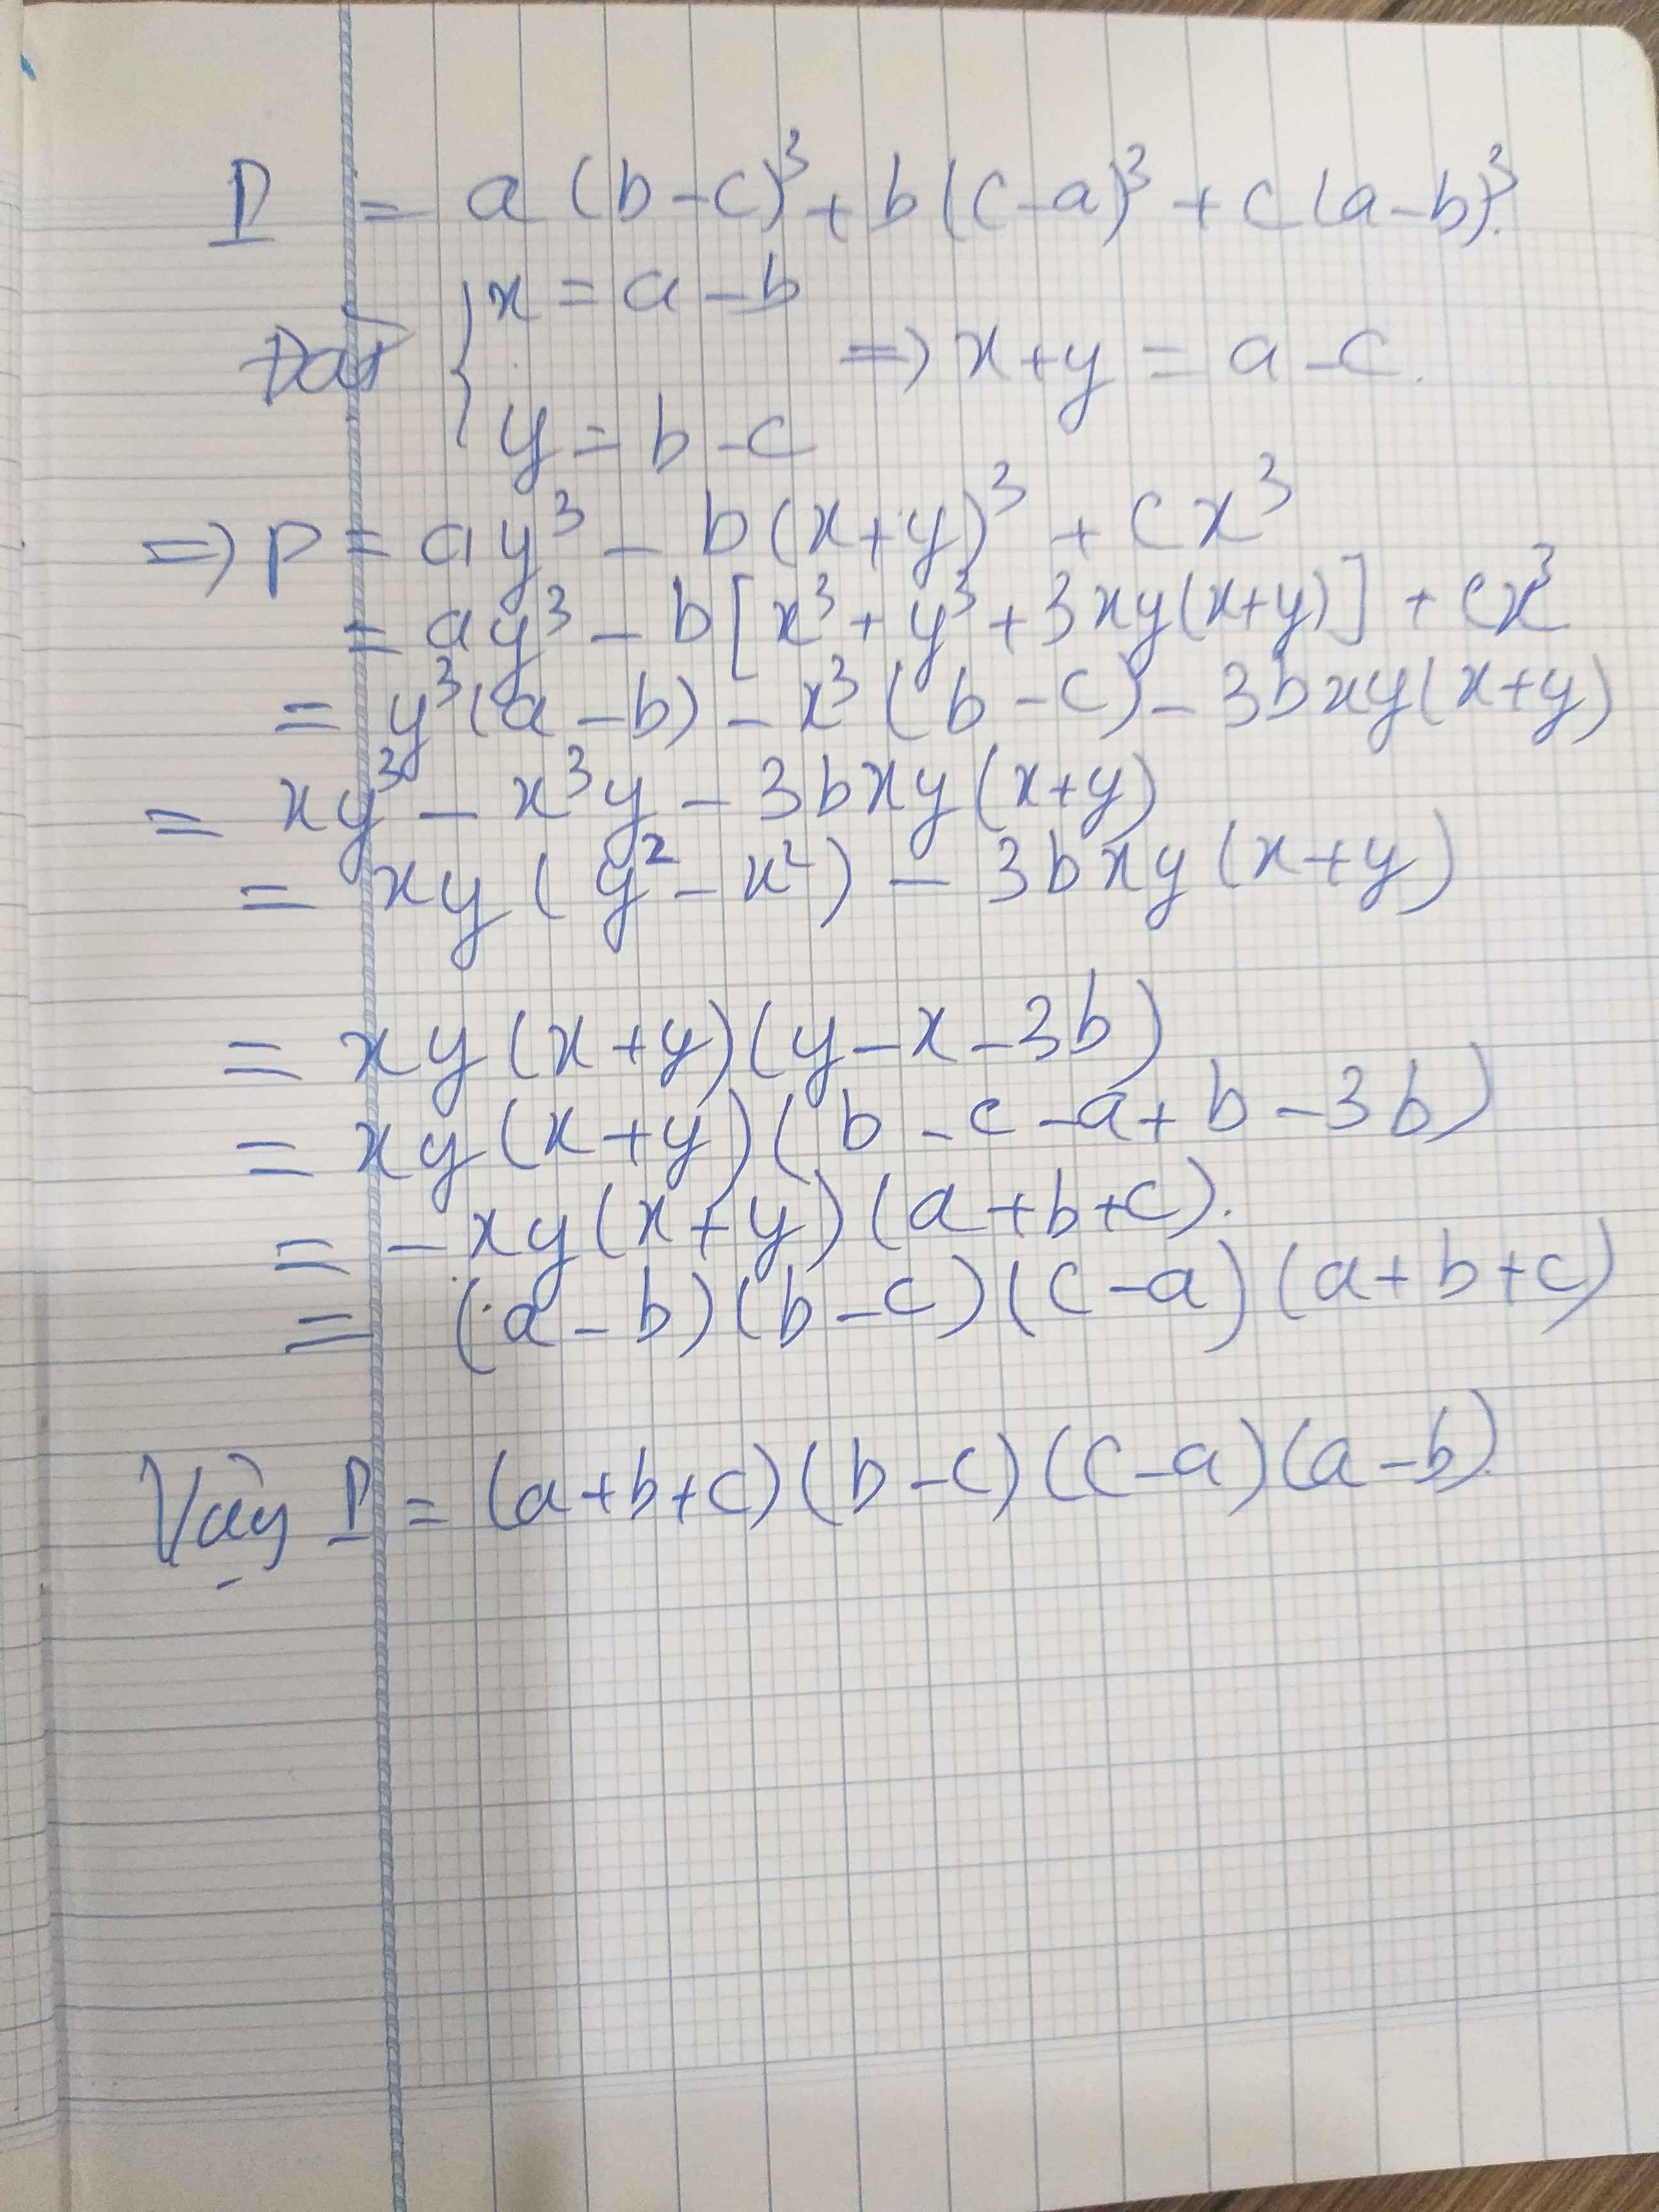 P = a(b-c)³ + b(c-a)³ + c(a-b)³.
Đặt { x = a-b
y = b-c ⇒ x+y = a-c.
⇒ P = ay³ - b(x+y)³ + cx³
= ay³ - b[x³+y³+3xy(x+y)] + cx³
= y³(a-b) - x³(b-c) - 3bxy(x+y)
= xy³ - x³y - 3bxy(x+y)
= xy(y²-x²) - 3bxy(x+y)
= xy(x+y)(y-x-3b)
= xy(x+y)(b-c-a+b-3b)
= -xy(x+y)(a+b+c).
= (a-b)(b-c)(c-a)(a+b+c)
Vậy P = (a+b+c)(b-c)(c-a)(a-b).